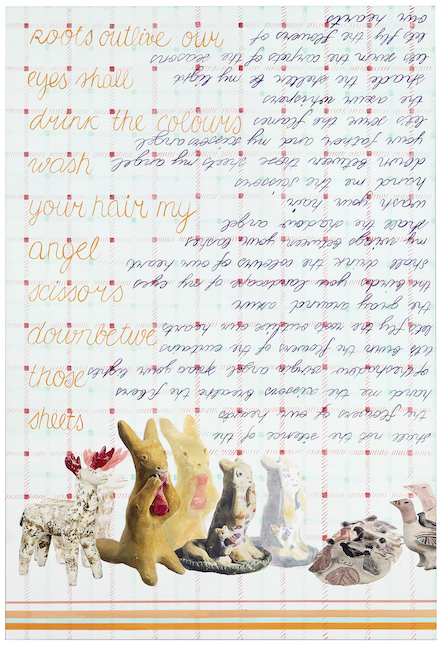 Roots outlive our
eyes shall
drink the colours
wash
your hair my
angel
scissors
downbetwe
those
sheets
not the silence of the
the flowers of our hearts
hand me the scissors breathe the
angel your lights
lets burn the flowers of the curtains
lets fly the roots outlive our hearts
the gray around azur
the birds your landscape of my eyes
shall drink the colours of our
my wings between your lashes
shall the shadow angel
wash your hair
hand me the scissors
down between those sheets my angel
your father and my scissors angel
let's the flames
the azur whispers
shade the shelter my light
lets swim the carpets of the seasons
let fly the flowers of
our hearts